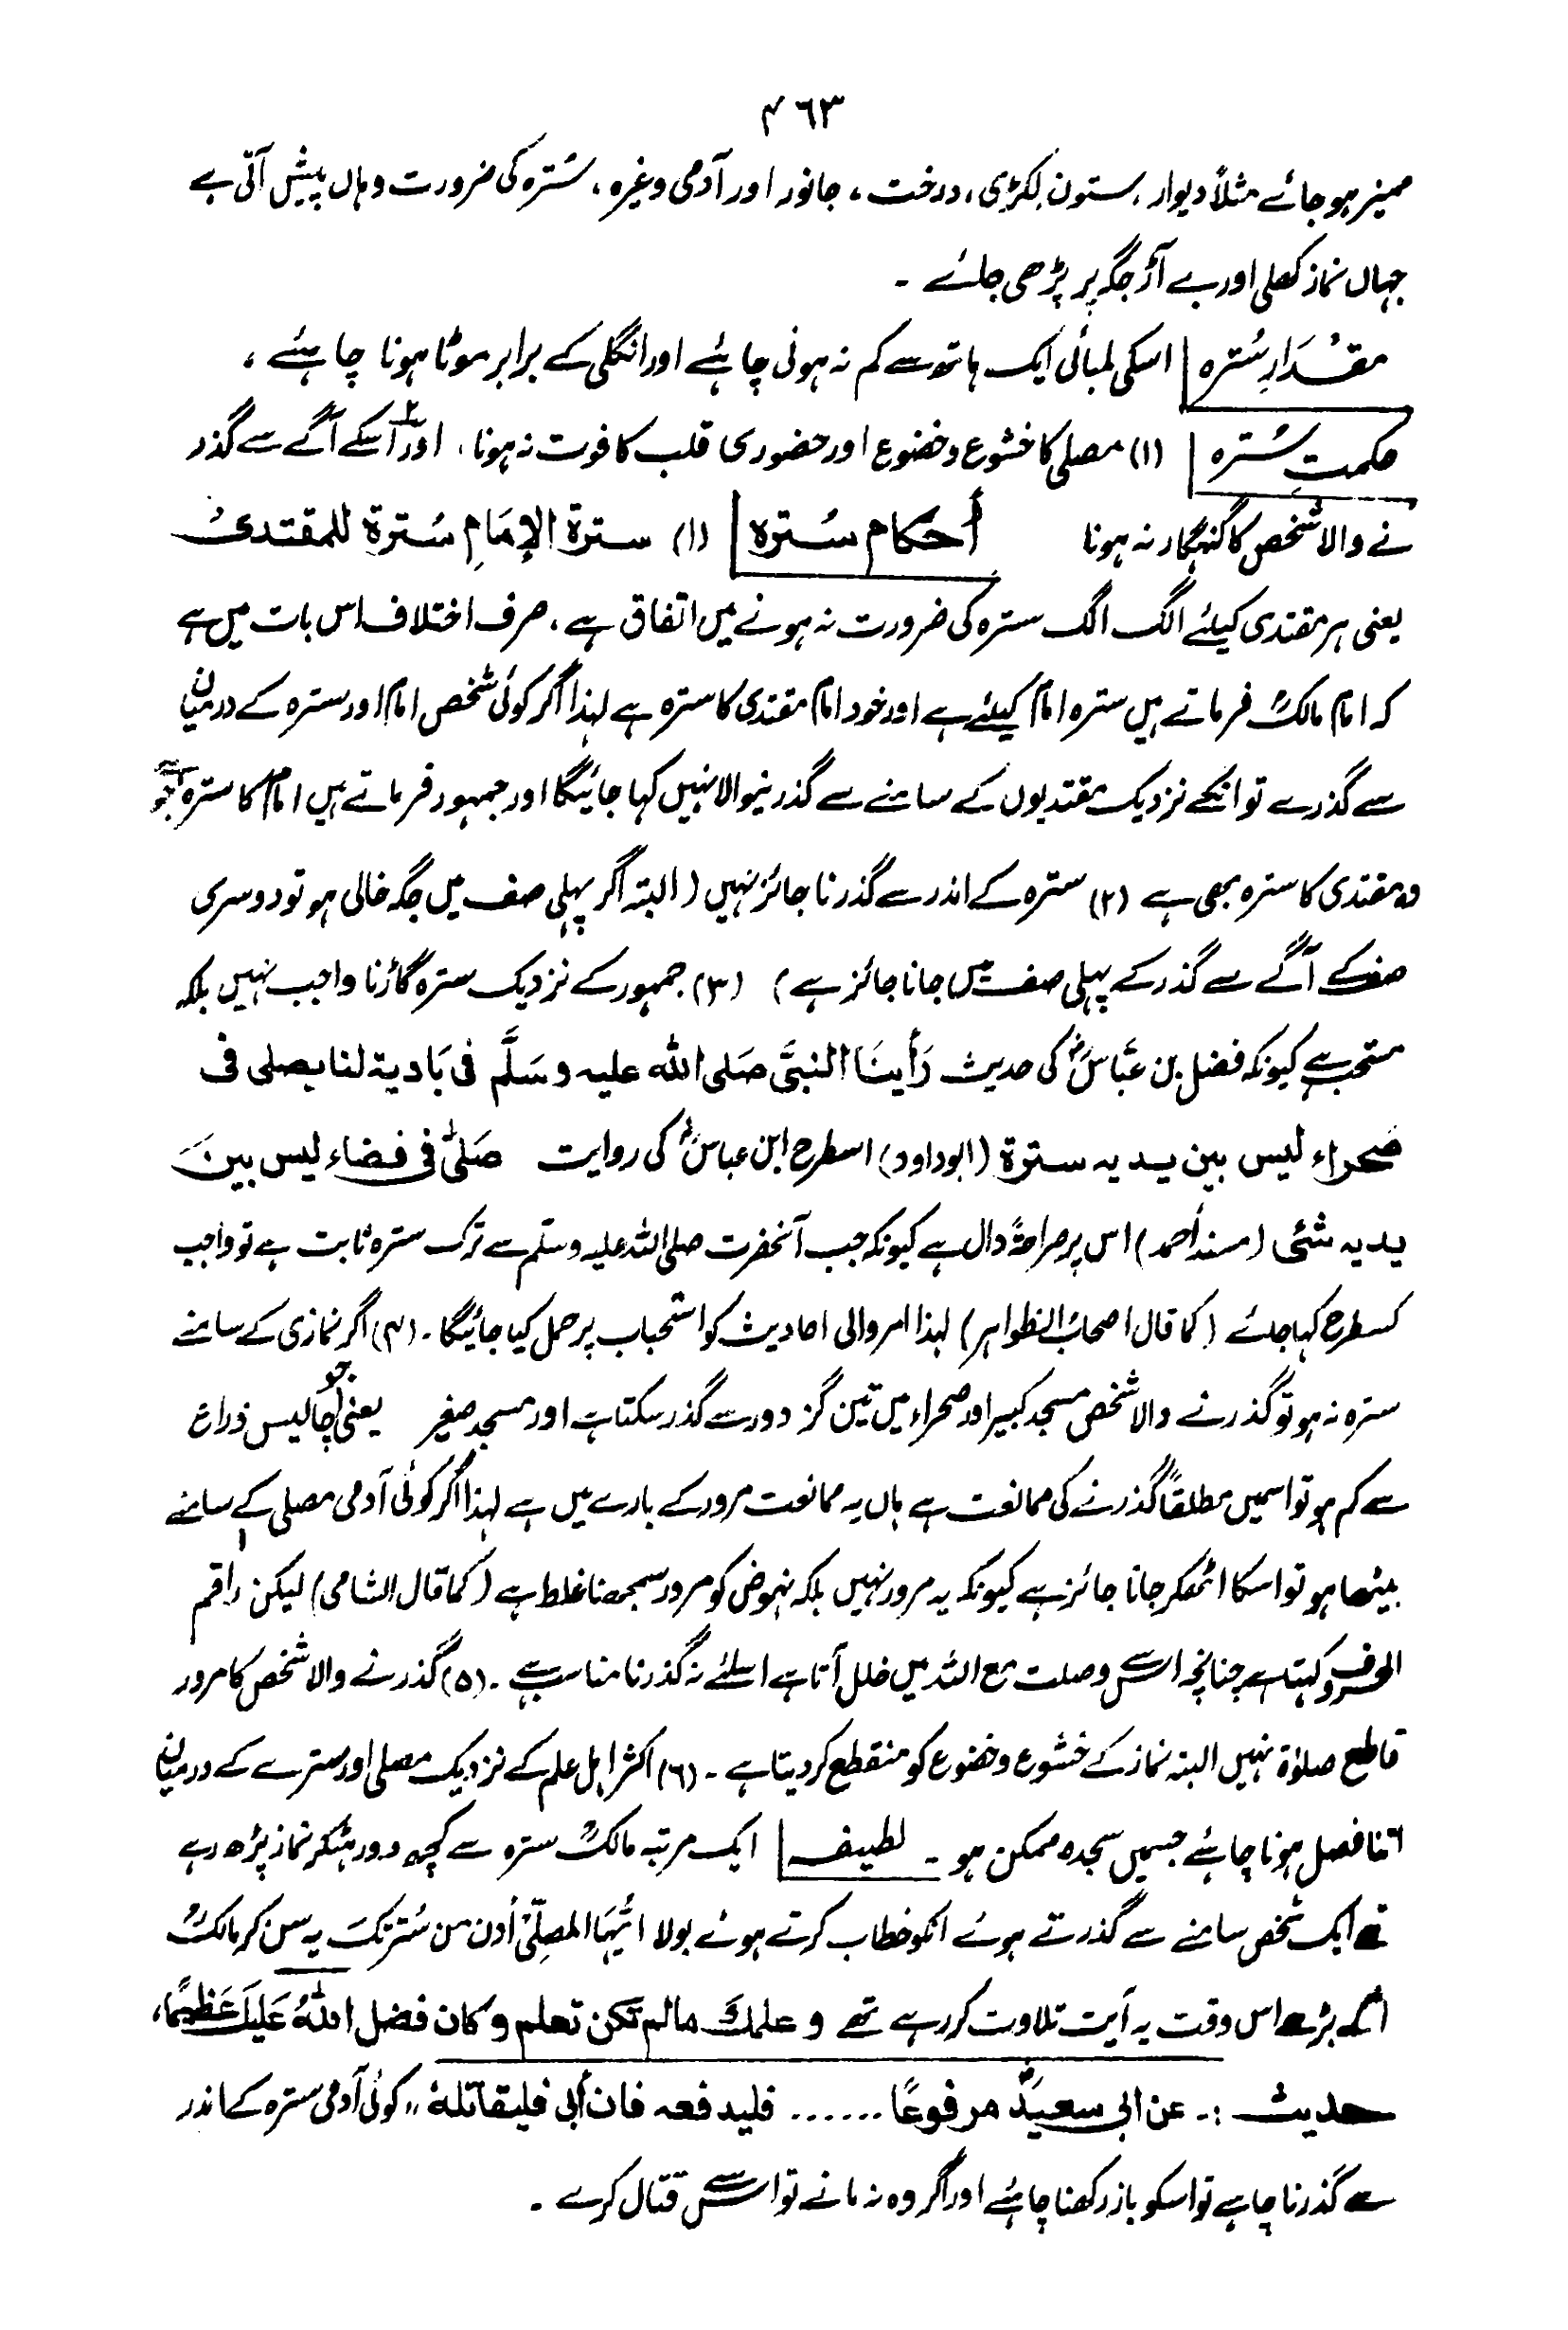 ۴٦٣
ممیز ہو جائے مثلاً دیوار، ستون، لکڑی، درخت، جانور اور آدمی وغیرہ، سُترہ کی ضرورت وہاں پیش آتی ہے
جہاں نماز کھلی اور بے آڑ جگہ پر پڑھی جائے ۔
مقدَارِ سُترہ | اسکی لمبائی ایک ہاتھ سے کم نہ ہونی چاہئے اور انگلی کے برابر موٹا ہونا چاہئے ،
حکمتِ سُترہ | (۱) مصلی کا خشوع وخضوع اور حضوری قلب کا فوت نہ ہونا ، اور ۲ اسکے آگے سے گذر
نے والا شخص کا گنہگار نہ ہونا أحکام سُترہ | (۱) سترة الإمَامِ سُترة للمقتدی
یعنی ہر مقتدی کیلئے الگ الگ سترہ کی ضرورت نہ ہونے میں اتفاق ہے ، صرف اختلاف اس بات میں ہے
کہ امام مالکؒ فرماتے ہیں سترہ امام کیلئے ہے اور خود امام مقتدی کا سترہ ہے لہذا اگر کوئی شخص امام اور سترہ کے درمیان
سے گذرے تو انکے نزدیک مقتدیوں کے سامنے سے گذرنیوالا نہیں کہا جائیگا اور جمہور فرماتے ہیں امام کا سترہ جو ہے
وہ مقتدی کا سترہ بھی ہے (۲) سترہ کے اندر سے گذرنا جائز نہیں (البتہ اگر پہلی صف میں جگہ خالی ہو تو دوسری
صف کے آگے سے گذر کے پہلی صف میں جانا جائز ہے) (۳) جمہور کے نزدیک سترہ گاڑنا واجب نہیں بلکہ
مستحب ہے کیونکہ فضل بن عبَّاسؓ کی حدیث رَأینَا النبیَّ صَلی اللہ علیہ وسَلَّم فی بَادیة لنا یصلی فی
صَحراء لیس بین یدیہ سترة (ابوداود) اسطرح ابن عباسؓ کی روایت صَلّٰی فی فضاء لیس بینَ
یدیہ شئی (مسند أحمد) اس پر صراحةً دال ہے کیونکہ جب آنحضرت صلی اللہ علیہ وسلم سے ترک سترہ ثابت ہے تو واجب
کسطرح کہا جائے (کما قال اصحابُ الظواہر) لہذا امر والی احادیث کو استحباب پر حمل کیا جائیگا ۔ (۴) اگر نمازی کے سامنے
سترہ نہ ہو تو گذرنے والا شخص مسجد کبیر اور صحراء میں تین گز دور سے گذر سکتا ہے اور مسجد صغیر یعنی جو چالیس ذراع
سے کم ہو تو اسمیں مطلقاً گذرنے کی ممانعت ہے ہاں یہ ممانعت مرور کے بارے میں ہے لہذا اگر کوئی آدمی مصلی کے سامنے
بیٹھا ہو تو اسکا اٹھکر جانا جائز ہے کیونکہ یہ مرور نہیں بلکہ نہوض کو مرور سمجھنا غلط ہے (کما قال الشامی) لیکن راقم
الحروف کہتا ہے چنانچہ اس سے وصلت مع اللہ میں خلل آتا ہے اسلئے نہ گذرنا مناسب ہے ۔ (۵) گذرنے والا شخص کا مرور
قاطع صلوٰة نہیں البتہ نماز کے خشوع وخضوع کو منقطع کر دیتا ہے ۔ (٦) اکثر اہل علم کے نزدیک مصلی اور سترے کے درمیان
اتنا فصل ہونا چاہئے جسمیں سجدہ ممکن ہو ۔ لطیفہ | ایک مرتبہ مالکؒ سترہ سے کچھ دور ہٹکر نماز پڑھ رہے
تھے ایک شخص سامنے سے گذرتے ہوئے انکو خطاب کرتے ہوئے بولا ایُّہَا المصلِّیْ اُدن من سُترتکَ یہ سن کر مالکؒ
آگے بڑھے اس وقت یہ آیت تلاوت کر رہے تھے و علمك مالم تکن تعلم وکان فضل اللّٰہُ عَلیكَ عَظیمًا،
حدیث :۔ عن ابی سعیدؓ مرفوعًا ...... فلیدفعہ فان أبی فلیقاتلہُ ،، کوئی آدمی سترہ کے اندر
سے گذرنا چاہے تو اسکو باز رکھنا چاہئے اور اگر وہ نہ مانے تو اس سے قتال کرے ۔